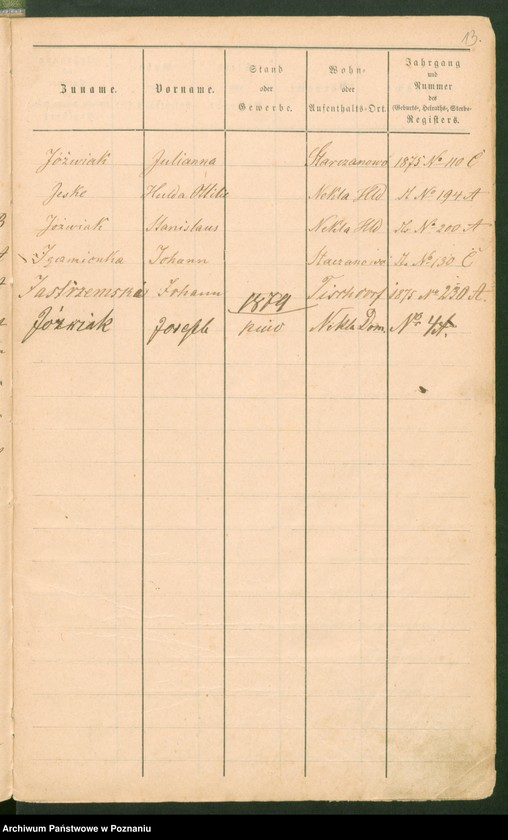 13.
Zuname. Vorname. Stand oder Gewerbe. Wohn- oder Aufenthalts-Ort. Jahrgang und Nummer des (Geburts-, Heiraths-, Sterbe-) Registers.
Jóźwiak Julianna Starczanowo 1875 No 110 C
Jeske Hulda Ottilie Nekla Hld No 194 A
Jóźwiak Stanislaus Nekla Hld No 200 A
Johann No 130 C
Jastrzemski Johann Tischdorf 1875 No 230 A.
1879
Józwiak Joseph Nekla Dom. No 4
Archiwum Państwowe w Poznaniu